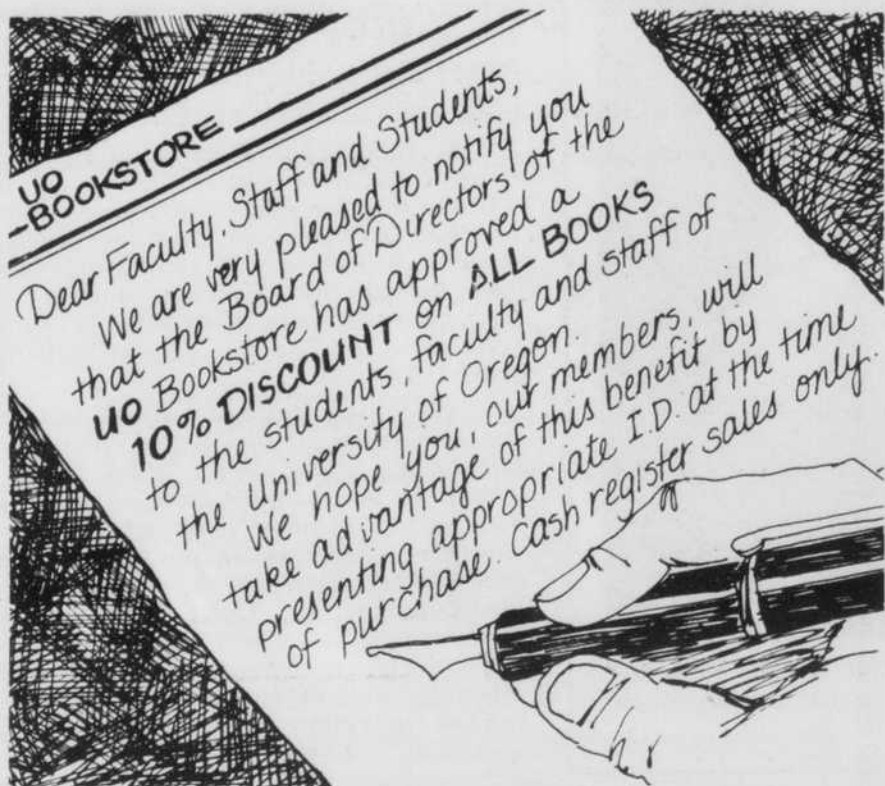 UO
BOOKSTORE
Dear Faculty, Staff and Students,
We are very pleased to notify you
that the Board of Directors of the
UO Bookstore has approved a
10% DISCOUNT on ALL BOOKS
to the students, faculty and staff of
the University of Oregon.
We hope you, our members, will
take advantage of this benefit by
presenting appropriate I.D. at the time
of purchase. Cash register sales only.